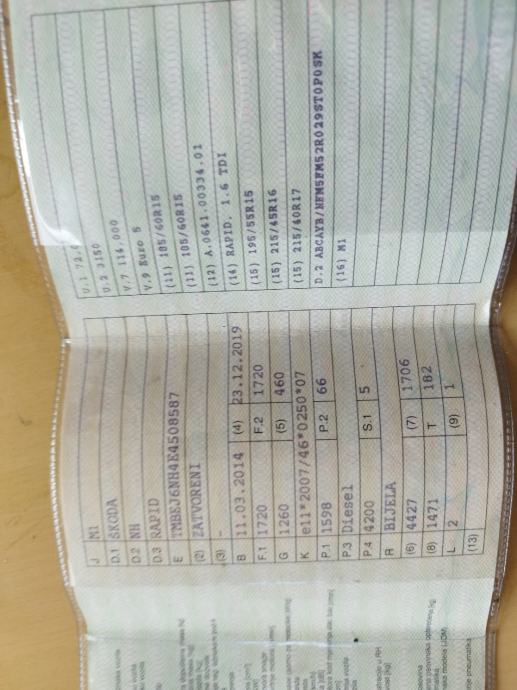 J M1
D.1 ŠKODA
D.2 NH
D.3 RAPID
E TMBEJ6NH4E4508587
(2) ZATVORENI
(3) -
B 11.03.2014 (4) 23.12.2019
F.1 1720 F.2 1720
G 1260 (5) 460
K e11*2007/46*0250*07
P.1 1598 P.2 66
P.3 Diesel
P.4 4200 S.1 5
R BIJELA
(6) 4427 (7) 1706
(8) 1471 T 182
L 2 (9) 1
(13)
V.1 72.
U.2 3150
V.7 114.000
V.9 Euro 5
(11) 185/60R15
(11) 185/60R15
(12) A.0641.00334.01
(14) RAPID, 1.6 TDI
(15) 195/55R15
(15) 215/45R16
(15) 215/40R17
D.2 ABCAYB/NFM5FM52R029STOP0SK
(16) M1